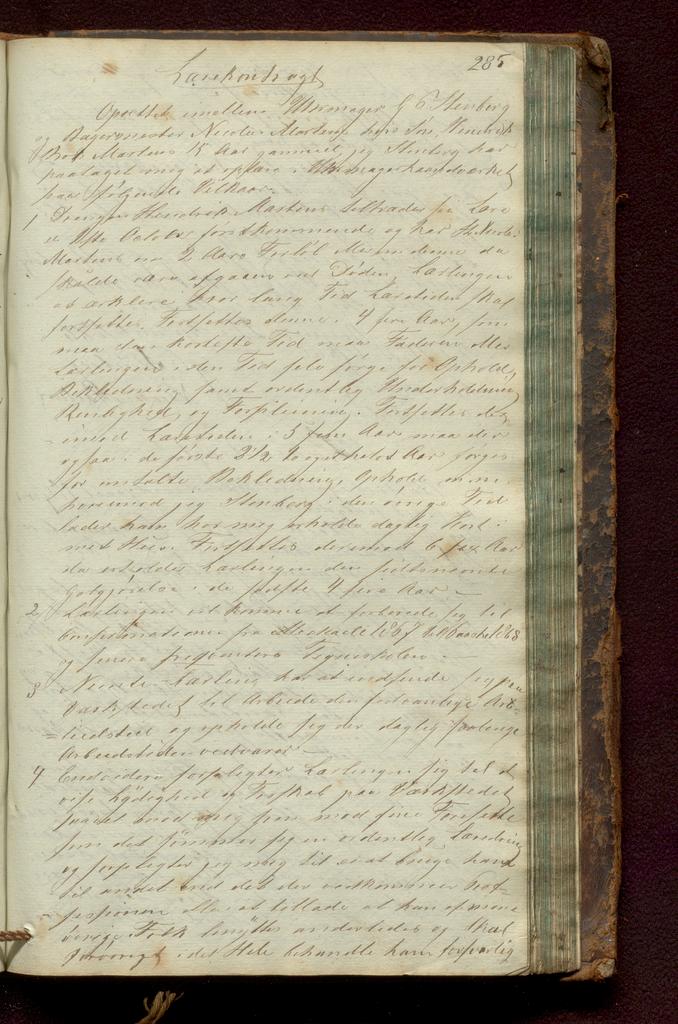 285
Lærekontragt
Oprettet imellem Uhrmager H C Stenberg
og Bagermester Nicolai Martens hans Søn, Hendrik
Martens 15 Aar gammel, jeg Stenberg har
paataget mig at oplære i Uhrmagerhaandværket
paa følgende Vilkaar.
1 Drengen Hendrik Martens tiltræder sin Lære
d October førstkommende og har
Martens om 2 Aars Forløb denne da
skulde være afgaaen ved Døden, Lærlingen
at erklære hvor lang Tid Læretiden skal
fortsættes. Fortsættes denne i 4 fire Aar, som
maa den korteste Tid maa Faderen eller
Lærlingen i den Tid selv sørge for Ophold,
Beklædning samt ordentlig Underholdning
Renlighed, og Forpleining. Fortsættes der-
imod Læretiden i 5 fem Aar maa der
ogsaa i de første 2½ to og et halvt Aar sørges
for omtalte Beklædning, Ophold m.m.
hvorimod jeg Stenberg i den øvrige Tid
lader ham hos mig erholde daglig Kost
med Huus. Fortsættes derimod 6 sex Aar
da erholder Lærlingen den sidstnævnte
Godtgjørelse i de sidste 4 fire Aar.
2 Lærlingen vil komme at forberede sig til
Confirmationen fra Michaeli 1867 til Paaske 1868
og senere freqventere Tegneskolen.
3 Nævnte Lærling har at indfinde sig paa
Værkstedet til Arbeide den forskandlige Ar-
beidstid og opholde sig der daglig saalænge
Arbeidstiden vedvarer
4 Endvidere forpligter Lærlingen sig til at
vise Lydighed og Troskab paa Værkstedet
saavel imod mig som mod sine Foresatte
som det sømmer sig en ordentlig Læredreng
og forpligter jeg mig til ei at bruge ham
til andet end det der vedkommer Pro-
fessionen eller at tillade at han af mine
øvrige Folk benyttes anderledes og skal
forøvrigt i det Hele behandle ham forsvarlig